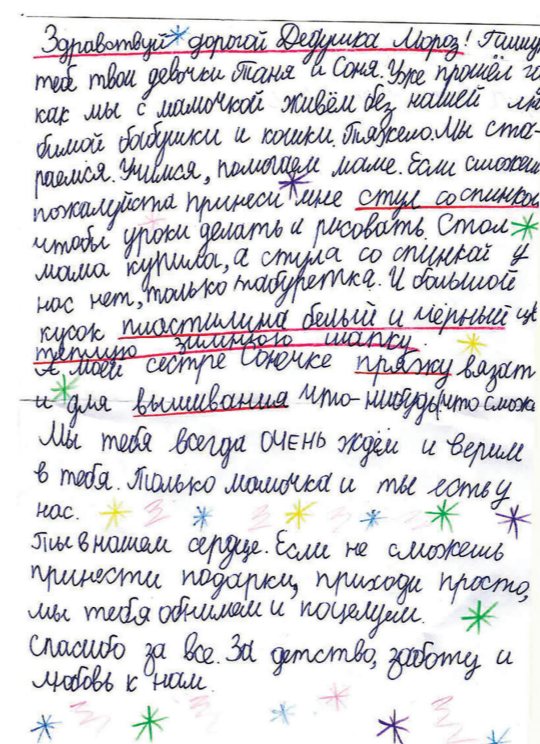 Здравствуй дорогой Дедушка Мороз! Пишу
тебе твои девочки Таня и Соня. Уже прошёл го
как мы с мамочкой живём без нашей лю
бимой бабушки и кошки. Тяжело. Мы ста-
раемся. Учимся, помогаем маме. Если сможеш
пожалуйста принеси мне стул со спинкой
чтобы уроки делать и рисовать. Стол
мама купила, а стула со спинкой у
нас нет, только табуретка. И большой
кусок пластилина белый и чёрный цв
теплую зимнюю шапку.
А моей сестре Сонечке пряжу вязат
и для вышивания что-нибудь, что сможе
Мы тебя всегда ОЧЕНЬ ждём и верим
в тебя. Только мамочка и ты есть у
нас.
Ты в нашем сердце. Если не сможешь
принести подарки, приходи просто,
мы тебя обнимем и поцелуем.
Спасибо за все. За детство, заботу и
любовь к нам.